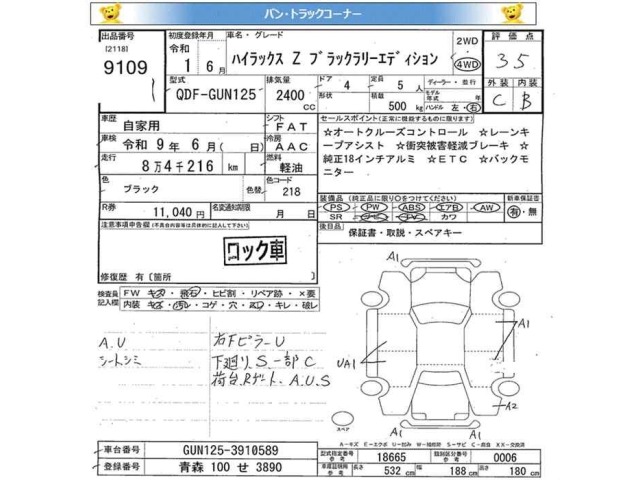 バン・トラックコーナー
出品番号
[2118]
9109
初度登録年月
令和
1 6月
車名・グレード
ハイラックス Z ブラックラリーエディション
2WD
4WD
評価点
3.5
型式
QDF-GUN125
排気量
2400
CC
ドア
4
形状
定員
5 人
積載
500 kg
ディーラー・並行
モデル年式 年
ハンドル 左・右
外装 内装
C B
車歴
自家用
シフト
FAT
車検
令和 9年 6月( 日)
冷房
AAC
走行
8万4千216 km
燃料
軽油
色
ブラック
色替
色コード
218
R券
11,040 円
名変通知期限
月 日
セールスポイント(正常に機能するものに限ります)
☆オートクルーズコントロール ☆レーンキ
ープアシスト ☆衝突被害軽減ブレーキ ☆
純正18インチアルミ ☆ETC ☆バックモ
ニター
装備品(純正品に限り○をつけてください)
PS PW ABS エアB AW
SR カワ
新車保証書
有・無
後日品
保証書・取説・スペアキー
注意事項申告欄(不具合内容等は具体的に記入して下さい)
ロック車
修復歴 有〔箇所
検査員記入欄
FW キズ・飛石・ヒビ割・リペア跡・×要
内装 キズ・汚レ・コゲ・穴・スレ・キレ・破レ
A.U
シートシミ
右下ピラーU
下廻りS.一部C
荷台.Rゲート.A.U.S
A1
A1
UA1
A2
A1
A1
スペア
A-キズ E-エクボ U-凹み W-補修跡 S-サビ C-腐食 XX-交換済
車台番号
GUN125-3910589
登録番号
青森 100 せ 3890
型式指定番号
参考
18665
類別区分番号
参考
0006
車庫証明用
参考
長さ
532 cm
幅
188 cm
高さ
180 cm